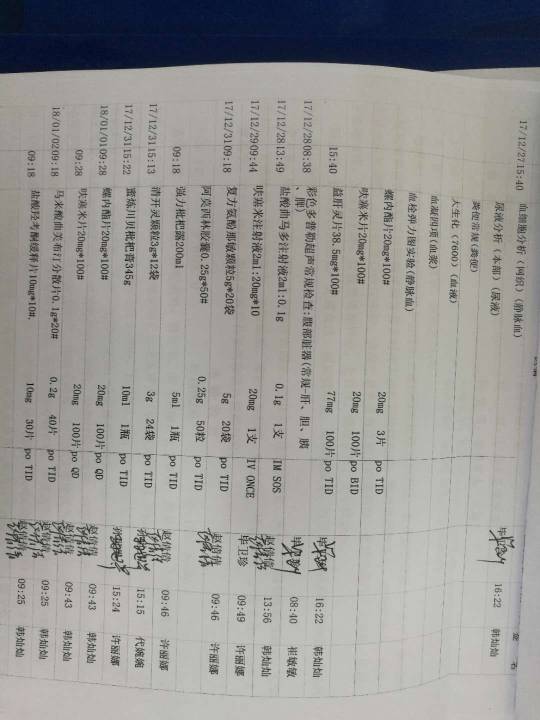 17/12/27 15:40 血细胞分析(网织)(静脉血) 16:22 韩灿灿
尿液分析(本部)(尿液)
粪便常规(粪便)
大生化(7600)(血液)
血凝四项(血浆)
血栓弹力图实验(静脉血)
螺内酯片20mg*100# 20mg 3片 po TID
呋塞米片20mg*100# 20mg 100片 po BID
15:40 益肝灵片38.5mg*100# 77mg 100片 po TID 16:22 韩灿灿
17/12/28 08:38 彩色多普勒超声常规检查:腹部脏器(常规-肝、胆、胰、脾) 08:40 崔敏敏
17/12/28 13:49 盐酸曲马多注射液2ml:0.1g 0.1g 1支 IM SOS 赵倩倩 13:56 韩灿灿
17/12/29 09:44 呋塞米注射液2ml:20mg*10 20mg 1支 IV ONCE 毕卫珍 09:49 许丽娜
17/12/31 09:18 复方氨酚那敏颗粒5g*20袋 5g 20袋 po TID
阿莫西林胶囊0.25g*50# 0.25g 50粒 po TID 赵倩倩 09:46 许丽娜
09:18 强力枇杷露200ml 5ml 1瓶 po TID 赵倩倩 09:46 许丽娜
17/12/31 15:13 清开灵颗粒3g*12袋 3g 24袋 po TID 15:15 代婉婉
17/12/31 15:22 蜜炼川贝枇杷膏345g 10ml 1瓶 po TID 15:24 许丽娜
18/01/01 09:28 螺内酯片20mg*100# 20mg 100片 po QD 赵倩倩 09:43 韩灿灿
09:28 呋塞米片20mg*100# 20mg 100片 po QD 赵倩倩 09:43 韩灿灿
18/01/02 09:18 马来酸曲美布汀分散片0.1g*20# 0.2g 40片 po TID 赵倩倩 09:25 韩灿灿
09:18 盐酸羟考酮缓释片10mg*10#. 10mg 30片 po TID 赵倩倩 09:25 韩灿灿